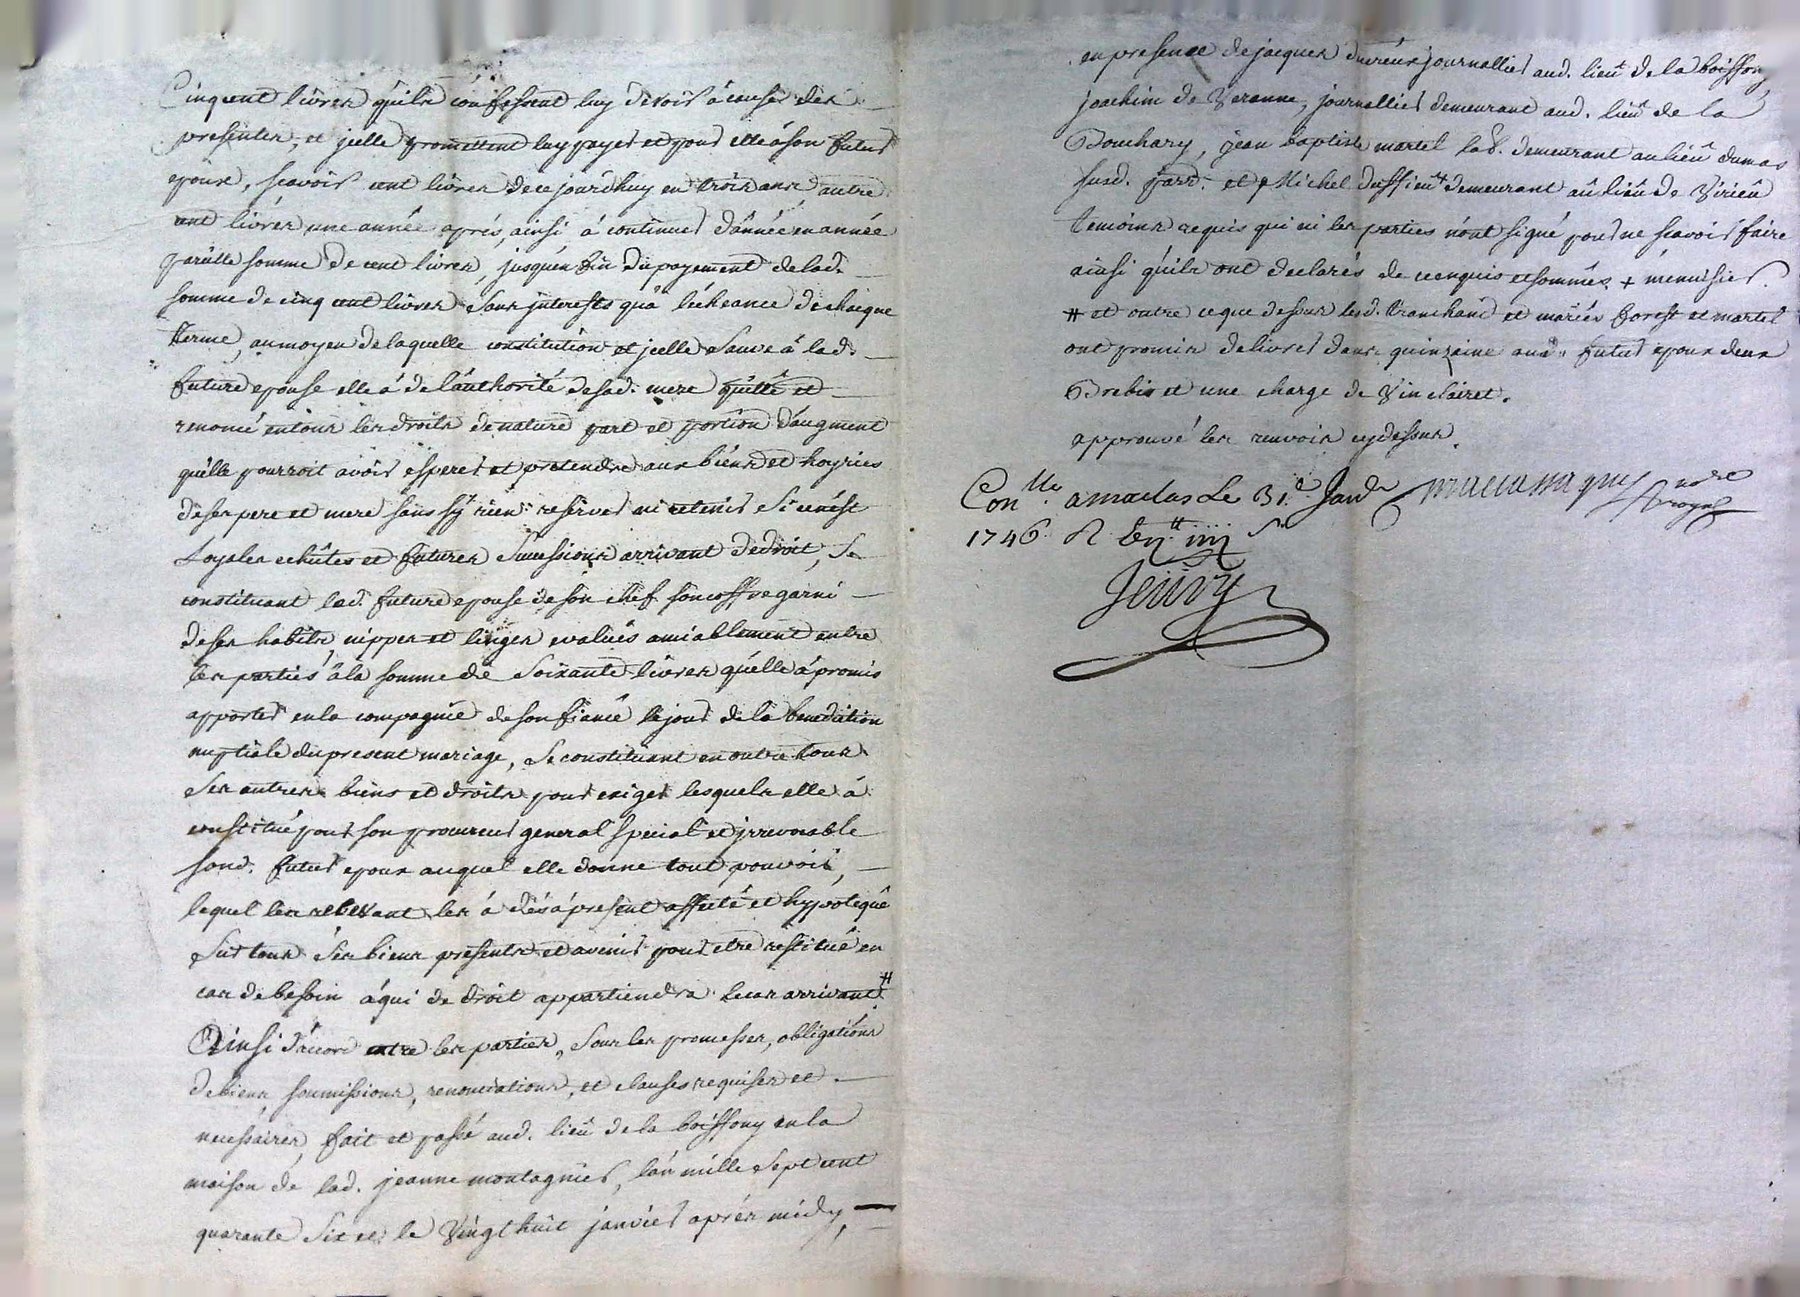 Cinqcent livres quils confessent luy devoir à cause des
presentes, et jcelle promettent luy payer et pour elle à son futur
epoux, scavoir cent livres de ce jourdhuy en trois ans, autre
cent livres une année après, ainsi à continuer d'année en année
pareille somme de cent livres, jusquen fin du payement de lad.
somme de cinq cent livres sans jnterests qu'à l'écheance de chaque
terme, aumoyen de laquelle constitution et jcelle sauve à lad.
future epouse elle à de l'authorité de sad. mere quitté et
renoncé en tous les droits de nature part et portion d'augment
quelle pourroit avoir esperer et pretendre aux biens et hoyries
de ses pere et mere sans s'y rien reserver ni retenir si ce n'est
loyales echûtes et futures successions arrivant de droit, se
constituant lad. future epouse de son chef son coffre garni
de ses habits, nippes et linges evalués amiablement entre
les parties à la somme de soixante livres qu'elle à promis
apporter en la compagnie de son fiancé le jour de la benediction
nuptiale du present mariage, se constituant en outre tous
ses autres biens et droits pour exiger lesquels elle à
constitué pour son procureur general special et jrrevocable
sond. futur epoux auquel elle donne tout pouvoir,
lequel les recevant les à dès à present affecté et hypotequé
sur tous ses biens presents et avenir pour etre restitué en
cas de besoin à qui de droit appartiendra le cas arrivant #
Ainsi d'accord entre les parties, sous les promesses, obligations
de biens, soumissions, renonciations, et clauses requises et
necessaires, fait et passé aud. lieu de la boissony en la
maison de lad. jeanne montagnier, l'an mille sept cent
quarante six et le vingt huit janvier après midy,
en presence de jacques journallier aud. lieu de la boissony,
joachim de Veranne, journallier demeurant aud. lieu de la
Bouchary, jean baptiste martel lab. demeurant au lieu dumas
susd. parr. et Michel demeurant au lieu de Virieu
temoins requis qui ni les parties n'ont signé pour ne scavoir faire
ainsi qu'ils ont declarés de ce enquis et sommés + menuisier.
# et outre ce que dessus lesd. tranchand et mariés forest et martel
ont promis delivrer dans quinzaine aud. futur epoux deux
Brebis et une charge de vin clairet.
approuvé les renvois cy dessus.
Con.lle a maclas Le 31.e Janv.r
1746. R